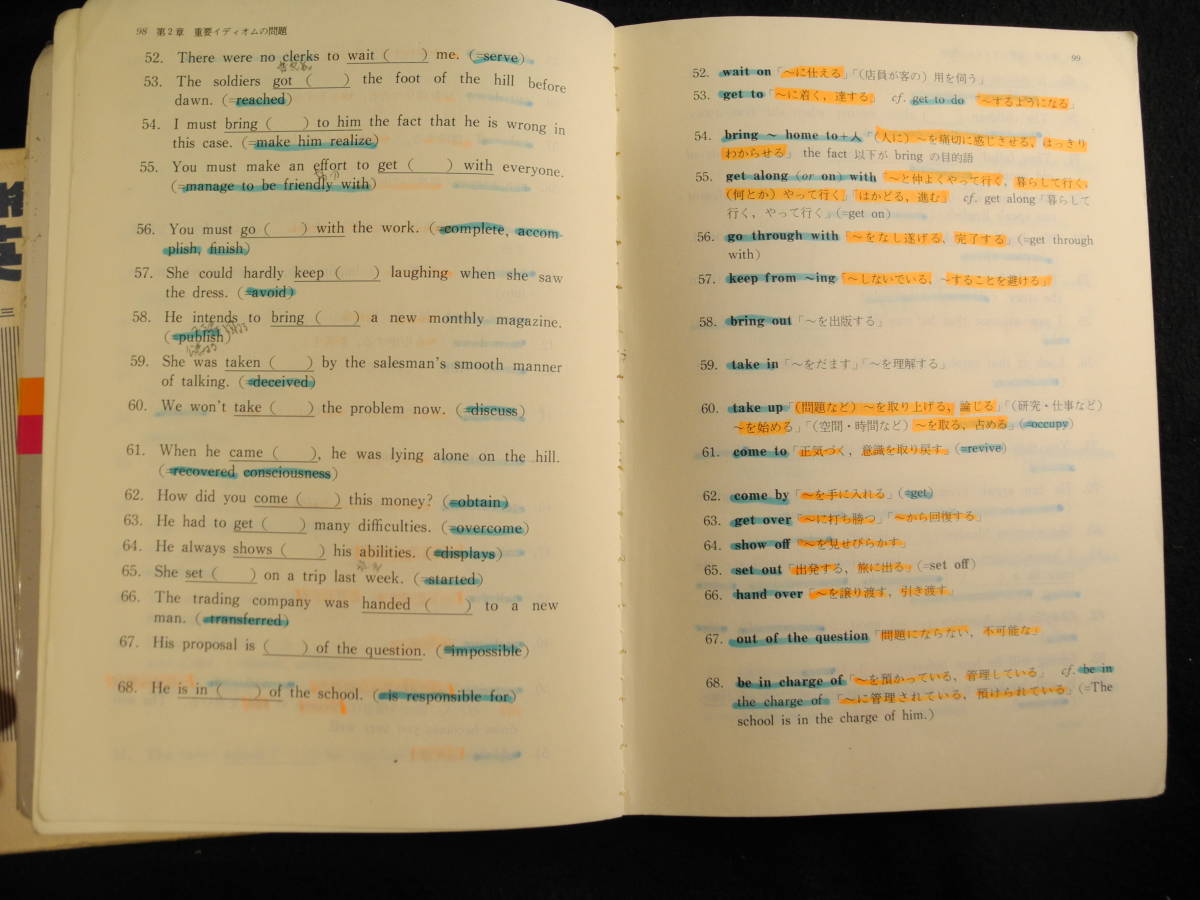 98 第2章 重要イディオムの問題
52. There were no clerks to wait ( ) me. (=serve)
53. The soldiers got ( ) the foot of the hill before
dawn. (=reached)
54. I must bring ( ) to him the fact that he is wrong in
this case. (=make him realize)
55. You must make an effort to get ( ) with everyone.
(=manage to be friendly with)
56. You must go ( ) with the work. (=complete, accom-
plish, finish)
57. She could hardly keep ( ) laughing when she saw
the dress. (=avoid)
58. He intends to bring ( ) a new monthly magazine.
(=publish)
59. She was taken ( ) by the salesman's smooth manner
of talking. (=deceived)
60. We won't take ( ) the problem now. (=discuss)
61. When he came ( ), he was lying alone on the hill.
(=recovered consciousness)
62. How did you come ( ) this money? (=obtain)
63. He had to get ( ) many difficulties. (=overcome)
64. He always shows ( ) his abilities. (=displays)
65. She set ( ) on a trip last week. (=started)
66. The trading company was handed ( ) to a new
man. (=transferred)
67. His proposal is ( ) of the question. (=impossible)
68. He is in ( ) of the school. (=is responsible for)
99
52. wait on「〜に仕える」「(店員が客の) 用を伺う」
53. get to「〜に着く, 達する」 cf. get to do 「〜するようになる」
54. bring 〜 home to+人「(人に) 〜を痛切に感じさせる, はっきり
わからせる」 the fact 以下が bring の目的語
55. get along (or on) with 「〜と仲よくやって行く, 暮らして行く,
(何とか) やって行く」「はかどる, 進む」 cf. get along「暮らして
行く, やって行く」(=get on)
56. go through with 「〜をなし遂げる, 完了する」(=get through
with)
57. keep from 〜ing「〜しないでいる, 〜することを避ける」
58. bring out「〜を出版する」
59. take in「〜をだます」「〜を理解する」
60. take up「(問題など) 〜を取り上げる, 論じる」「(研究・仕事など)
〜を始める」「(空間・時間など) 〜を取る, 占める」(=occupy)
61. come to「正気づく, 意識を取り戻す」(=revive)
62. come by「〜を手に入れる」(=get)
63. get over「〜に打ち勝つ」「〜から回復する」
64. show off「〜を見せびらかす」
65. set out「出発する, 旅に出る」(=set off)
66. hand over「〜を譲り渡す, 引き渡す」
67. out of the question「問題にならない, 不可能な」
68. be in charge of「〜を預かっている, 管理している」 cf. be in
the charge of 「〜に管理されている, 預けられている」(=The
school is in the charge of him.)
英
三